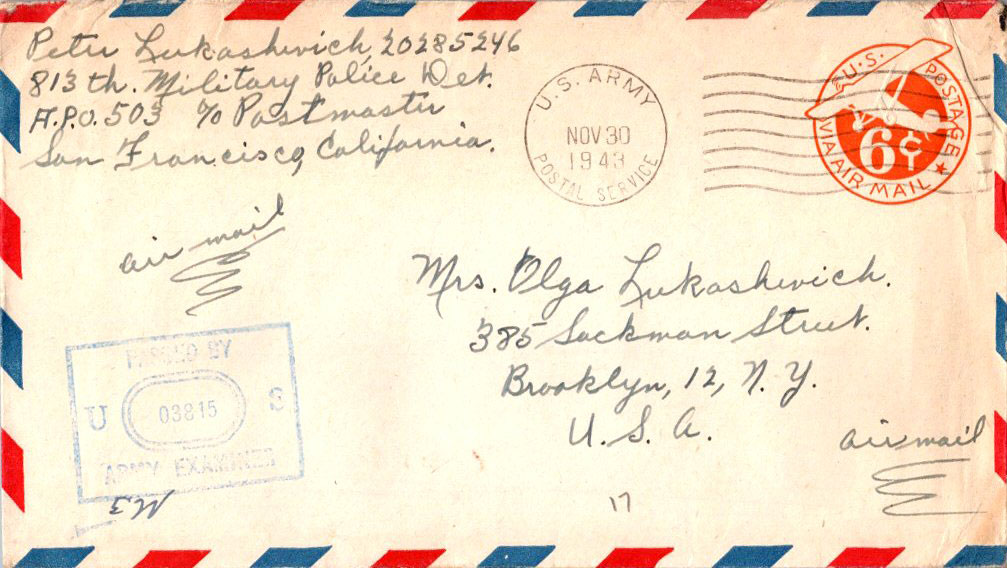 Peter Lukashwich, 20285246
813th. Military Police Det.
A.P.O. 503 c/o Postmaster
San Francisco, California.
U.S. ARMY
NOV 30
1943
POSTAL SERVICE
U.S. POSTAGE
6¢
VIA AIR MAIL
air mail
Mrs. Olga Lukashwich.
385 Sackman Street.
Brooklyn, 12, N. Y.
U. S. A.
air mail
PASSED BY
U 03815 S
ARMY EXAMINER
17